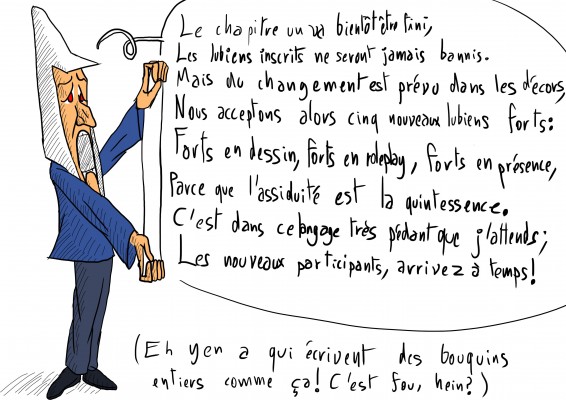 Le chapitre un va bientôt être fini,
Les lubiens inscrits ne seront jamais bannis.
Mais du changement est prévu dans les décors,
Nous acceptons alors cinq nouveaux lubiens forts:
Forts en dessin, forts en roleplay, forts en présence,
Parce que l'assiduité est la quintessence.
C'est dans ce langage très pédant que j'attends;
Les nouveaux participants, arrivez à temps!
(Eh y en a qui écrivent des bouquins
entiers comme ça! C'est fou, hein?)